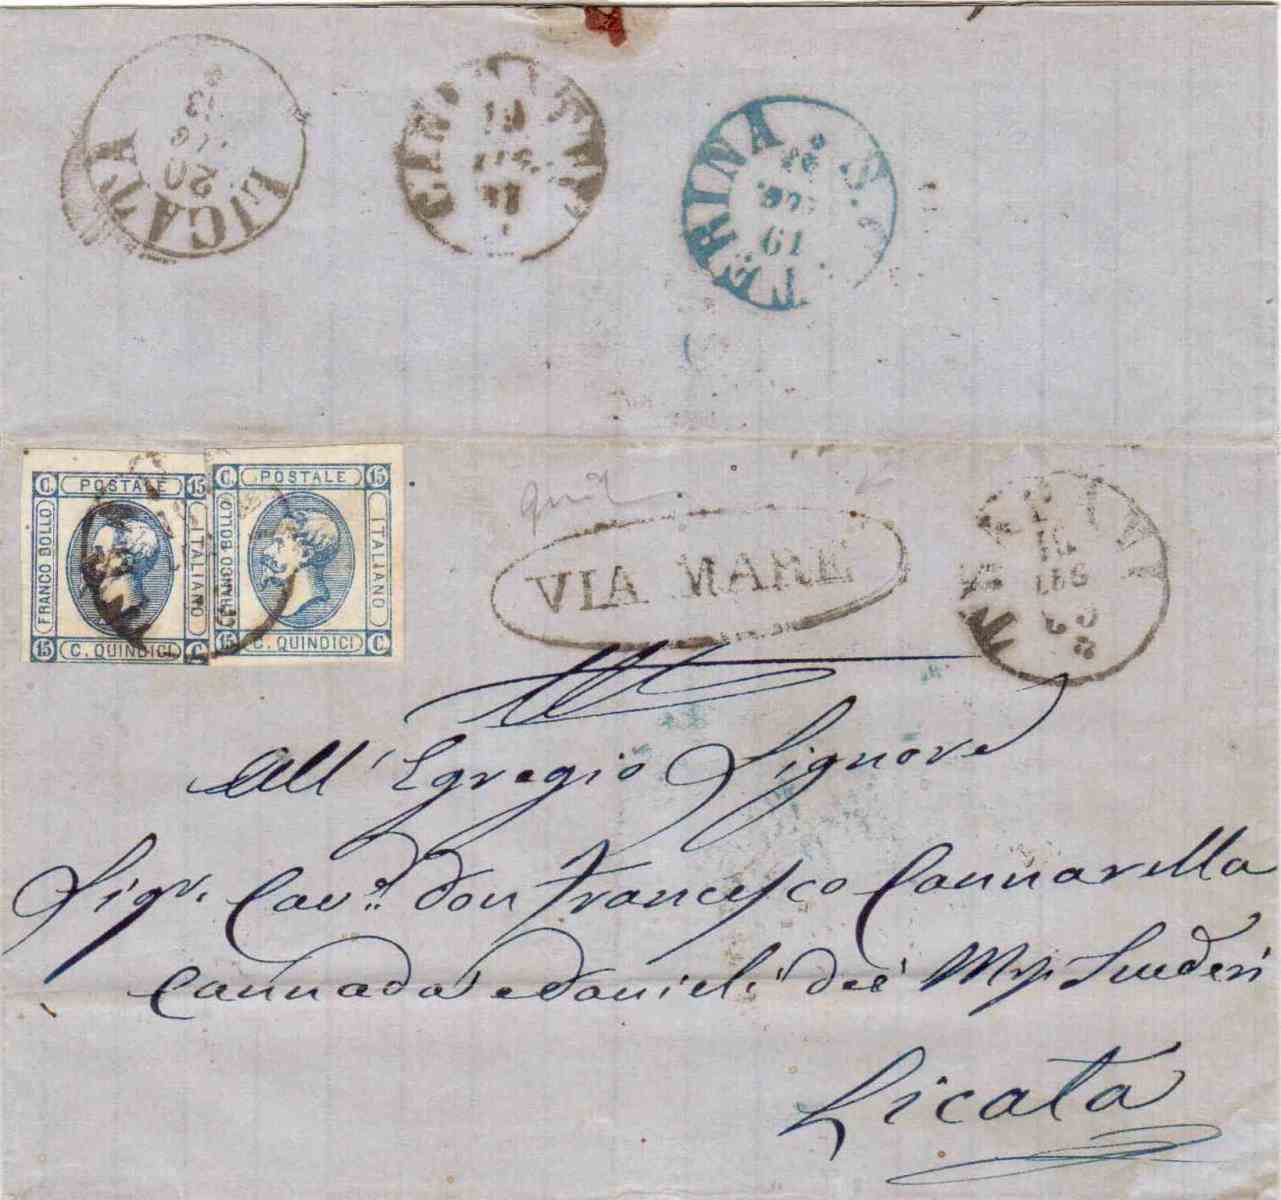 LICATA
20
13
CANI
TERINA
19
C POSTALE 15
FRANCO BOLLO
ITALIANO
15 C. QUINDICI C
C POSTALE 15
FRANCO BOLLO
ITALIANO
15 C. QUINDICI C
VIA MARE
All'Egregio Signore
Sigr. Cavr. Don Francesco Cannarella
Cannada e Danieli dei
Licata